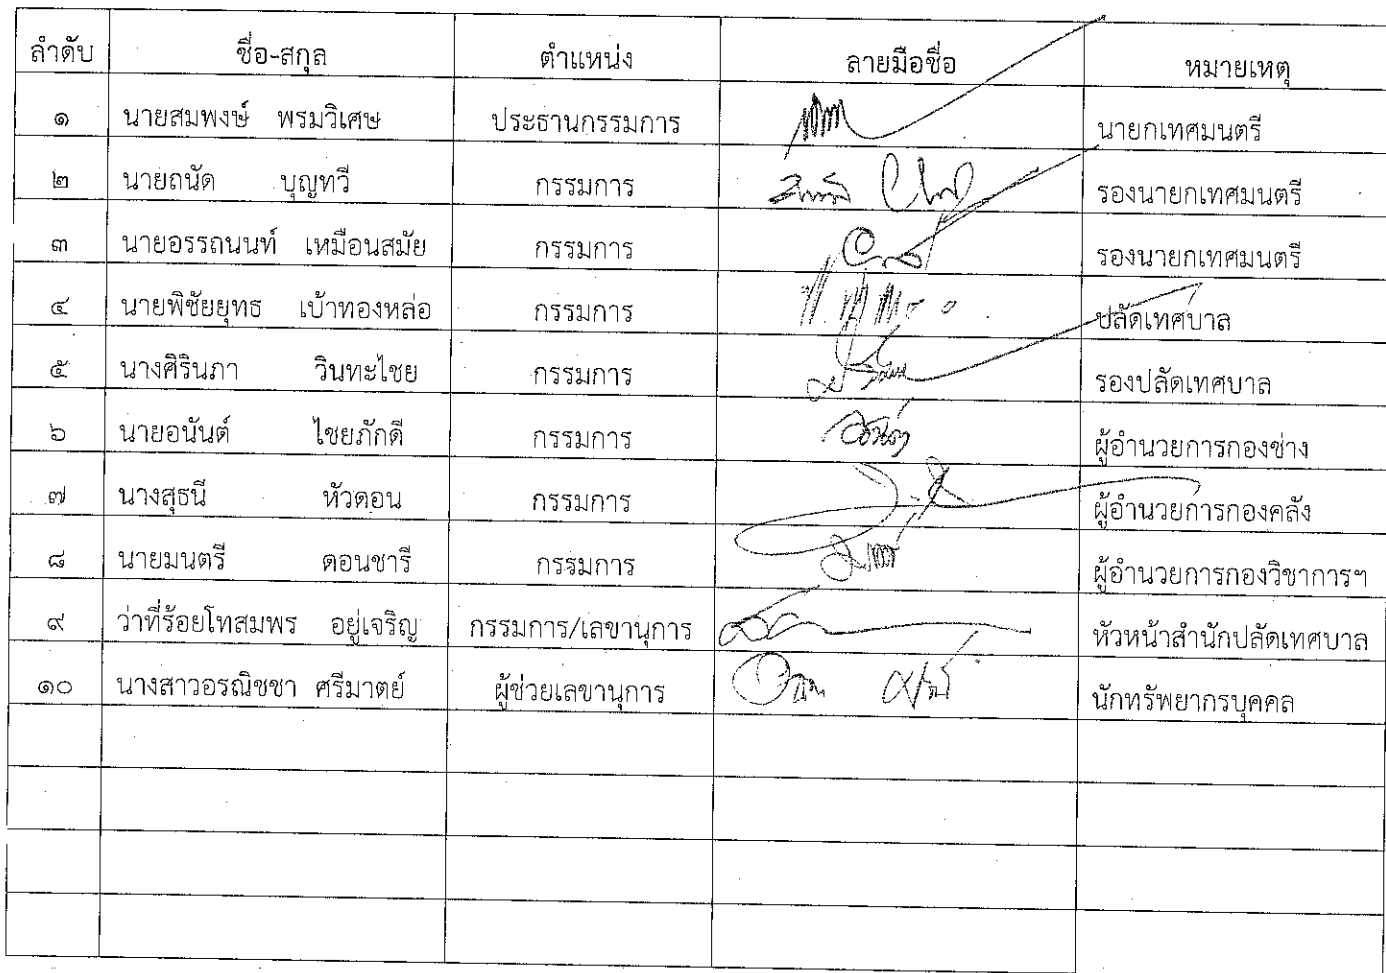 ลำดับ ชื่อ-สกุล ตำแหน่ง ลายมือชื่อ หมายเหตุ
๑ นายสมพงษ์ พรมวิเศษ ประธานกรรมการ นายกเทศมนตรี
๒ นายถนัด บุญทวี กรรมการ รองนายกเทศมนตรี
๓ นายอรรถนนท์ เหมือนสมัย กรรมการ รองนายกเทศมนตรี
๔ นายพิชัยยุทธ เบ้าทองหล่อ กรรมการ ปลัดเทศบาล
๕ นางศิรินภา วินทะไชย กรรมการ รองปลัดเทศบาล
๖ นายอนันต์ ไชยภักดี กรรมการ ผู้อำนวยการกองช่าง
๗ นางสุธนี หัวดอน กรรมการ ผู้อำนวยการกองคลัง
๘ นายมนตรี ดอนชารี กรรมการ ผู้อำนวยการกองวิชาการฯ
๙ ว่าที่ร้อยโทสมพร อยู่เจริญ กรรมการ/เลขานุการ หัวหน้าสำนักปลัดเทศบาล
๑๐ นางสาวอรณิชชา ศรีมาตย์ ผู้ช่วยเลขานุการ นักทรัพยากรบุคคล